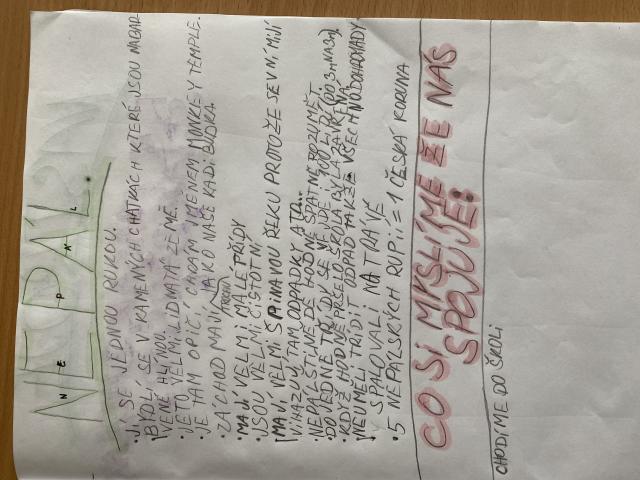 NEPÁL.
N E P Á L
• JÍ SE JEDNOU RUKOU.
• BYDLÍ SE V KAMENÝCH CHATKÁCH KTERÉ JSOU NABAR
VENÉ HLÍNOU.
• JE TO VELMI LIDNATÁ ZEMĚ.
• JE TAM OPIČÍ CHRÁM JMÉNEM MONKEY TEMPLE.
• ZÁCHOD MAJÍ JAKO NAŠE KADIBUDKA.
• MAJÍ VELMI MALÉ TŘÍDY
• JSOU VELMI ČISTOTNÍ
• MAJÍ VELMI ŠPINAVOU ŘEKU PROTOŽE SE V NÍ MIJÍ
VIHAZUJÍ TAM ODPADKY ATD...
• NEPÁLŠTINĚ JDE HODNĚ ŠPATNĚ ROZUMĚT.
• DO JEDNÉ TŘÍDY SE VEJDE 100 LIDÍ (DO 3M NA 3M)
• KDYŽ HODNĚ PRŠELO ŠKOLA BYLA ZAVŘENÁ.
• NEUMĚLI TŘÍDIT ODPAD TAKŽE VŠECHNO DOHROMADY
SPALOVALI NA TRÁVĚ
• 5 NEPÁLSKÝCH RUPIÍ = 1 ČESKÁ KORUNA
CO SI MYSLÍME ŽE NÁS
SPOJUJE:
CHODÍME DO ŠKOLI